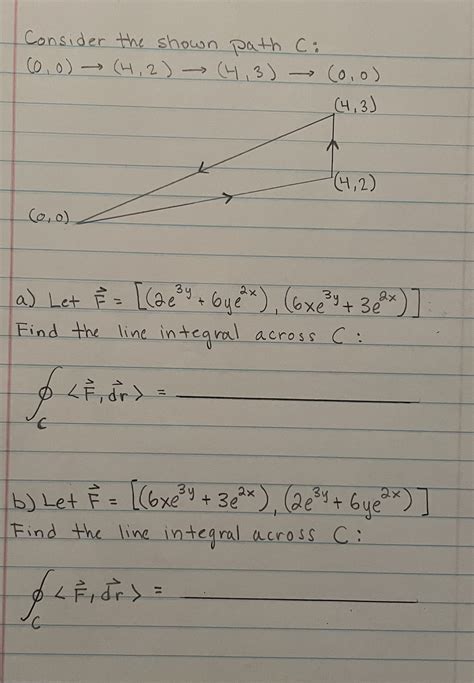 Consider the shown path C:
(0,0) → (4,2) → (4,3) → (0,0)
(4,3)
(4,2)
(0,0)
a) Let F⃗ = [(2e^3y + 6ye^2x), (6xe^3y + 3e^2x)]
Find the line integral across C:
∮_C <F⃗, dr⃗> =
b) Let F⃗ = [(6xe^3y + 3e^2x), (2e^3y + 6ye^2x)]
Find the line integral across C:
∮_C <F⃗, dr⃗> =